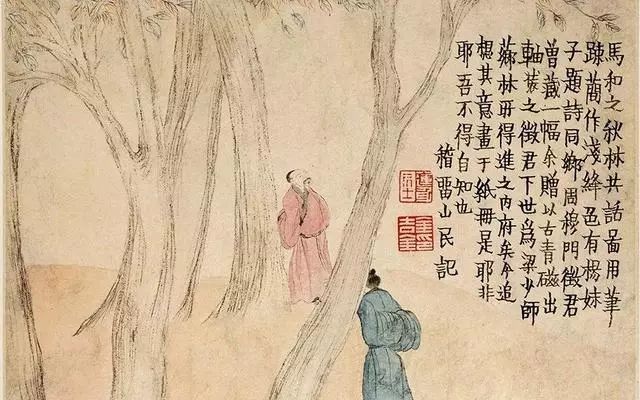 馬和之秋林共話啚用筆
疎蕳作淺絳色有楊妹
子題詩同鄉周穆門徵君
曾藏一幅余贈以古青磁出
軸裝之徵君下世爲梁少師
薌林毋得進之内府矣今追
想其意畫于紙冊是耶非
耶吾不得自知也
稽畱山民記